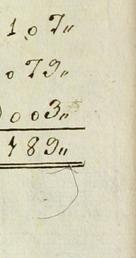 107„
079„
003„
789„